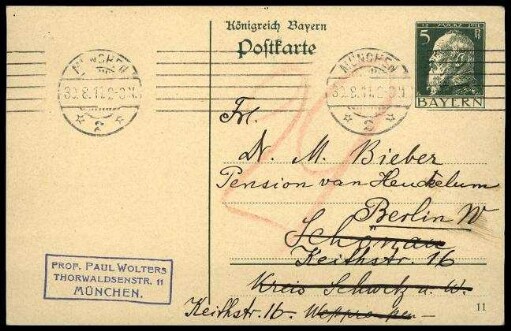 Königreich Bayern
Postkarte
12. MÄRZ 1911
5 Pf
BAYERN
MÜNCHEN
30.8.11.2-3N.
* 2 *
MÜNCHEN
30.8.11.2-3N.
* 2 *
Frl.
Dr. M. Bieber
Pension van Heukelum
Berlin W
Schönau
Keithstr. 16
Kreis Schwetz a. W.
Keithstr. 16. Westpreußen
PROF. PAUL WOLTERS
THORWALDSENSTR. 11
MÜNCHEN.
11